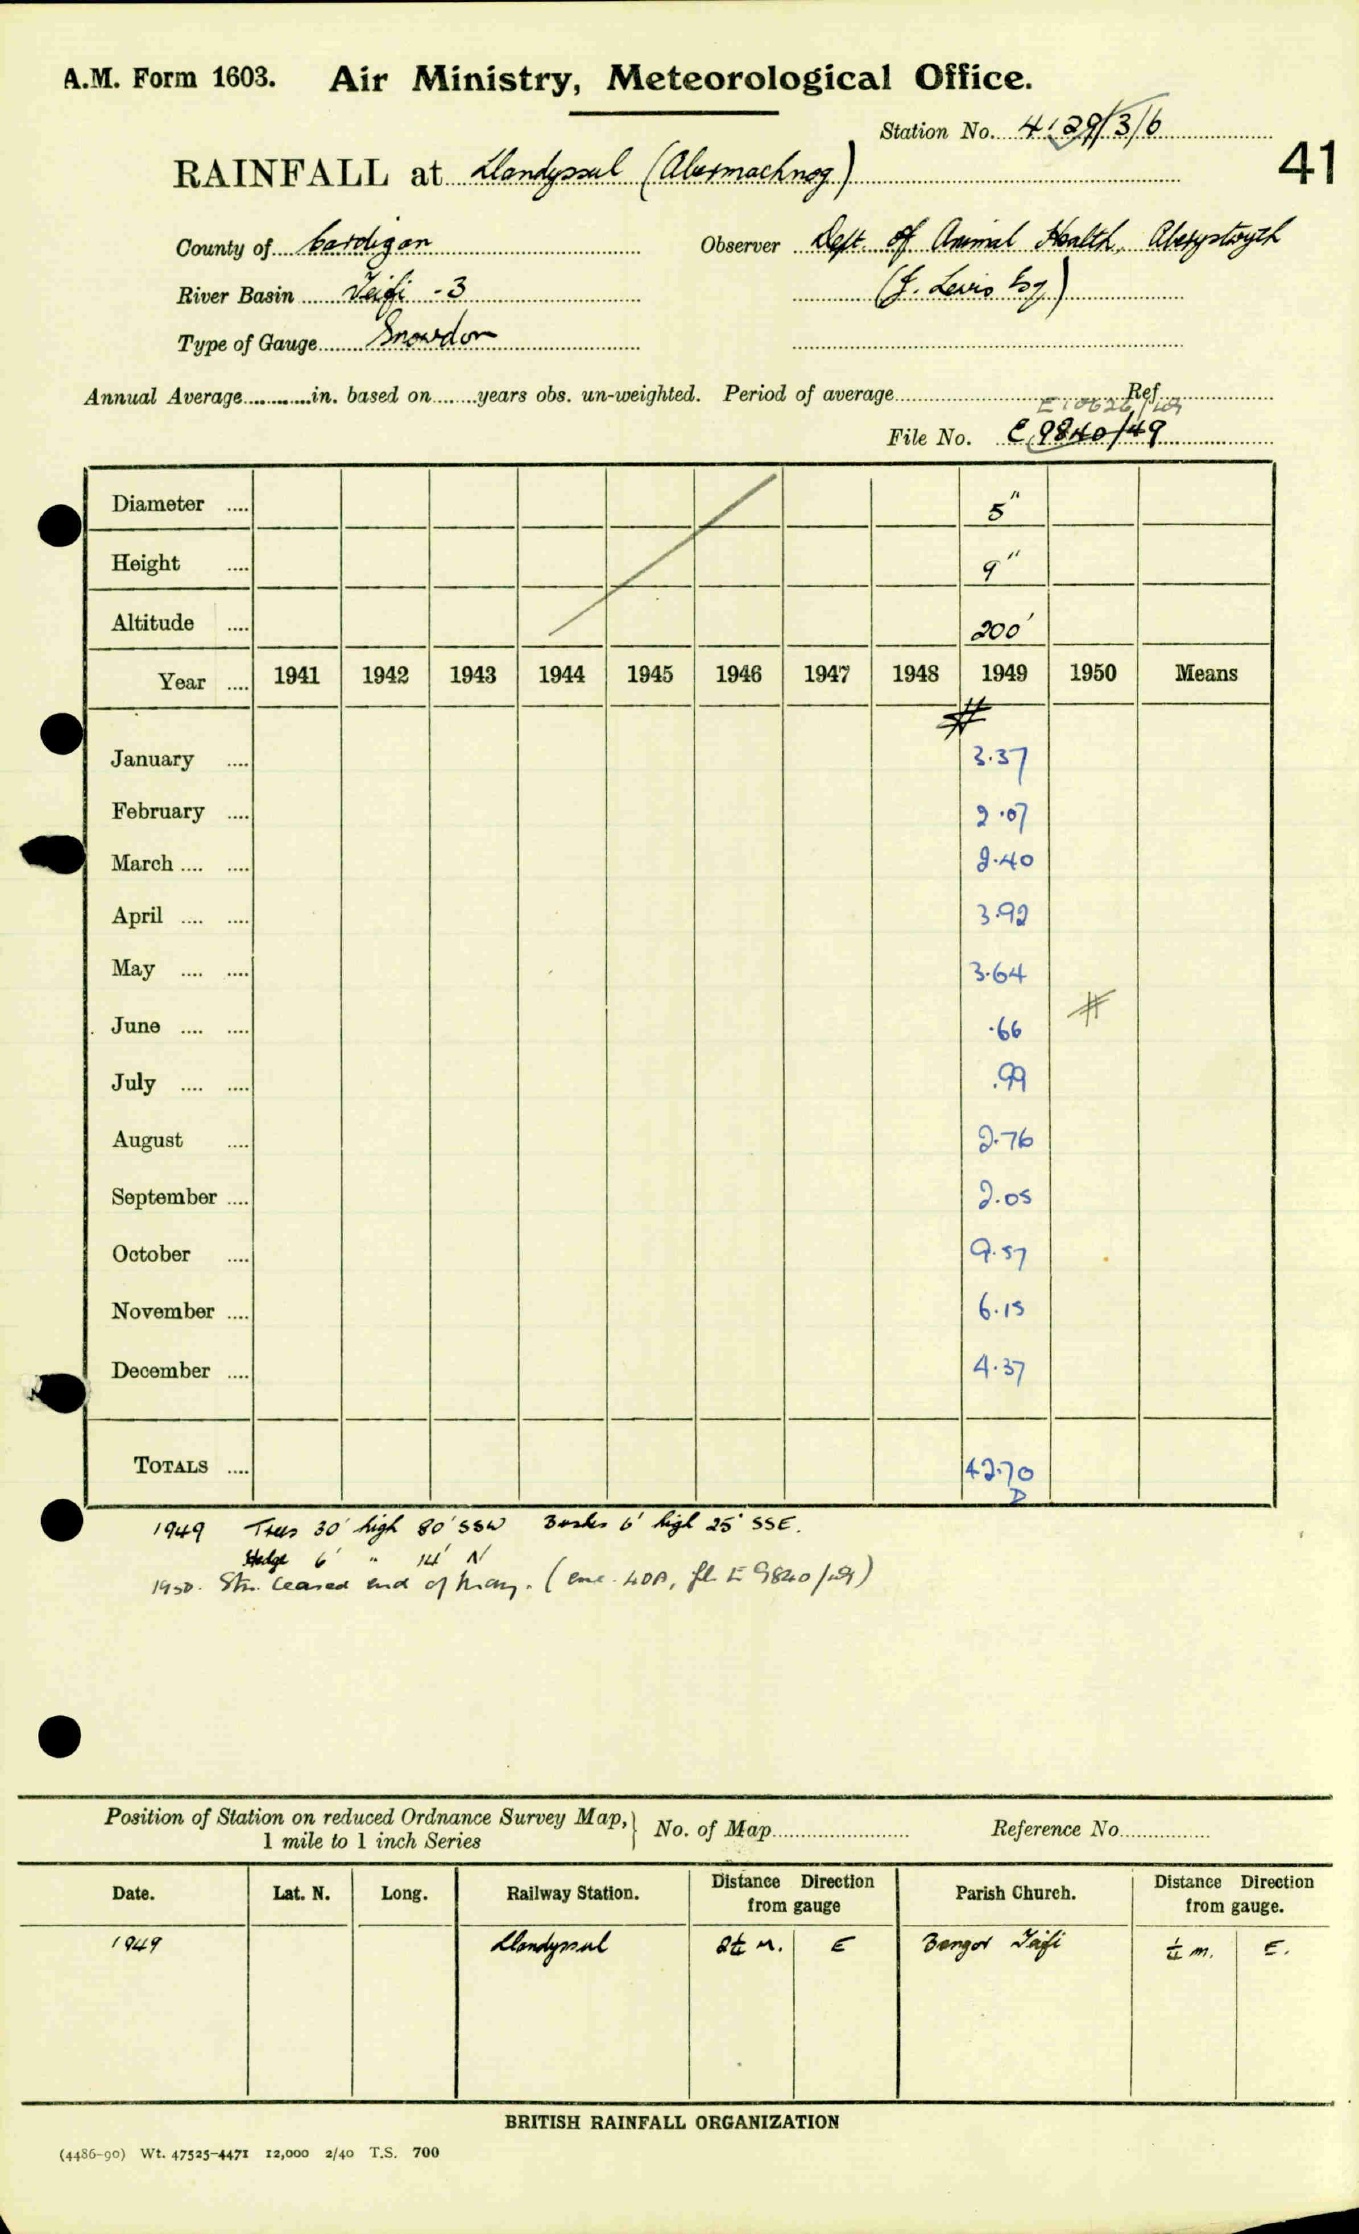 A.M. Form 1603. Air Ministry, Meteorological Office.
Station No. 4129/3/6
41
RAINFALL at Llandyssul (Abermachnog)
County of Cardigan Observer Dept. of Animal Health, Aberystwyth
River Basin Teifi - 3 (J. Lewis Esq)
Type of Gauge Snowdon
Annual Average in. based on years obs. un-weighted. Period of average Ref
File No. E 9840/49
Diameter .... 5"
Height .... 9"
Altitude .... 200'
Year .... 1941 1942 1943 1944 1945 1946 1947 1948 1949 1950 Means
#
January .... 3.37
February .... 2.07
March .... .... 2.40
April .... .... 3.92
May .... .... 3.64
#
June .... .... .66
July .... .... .99
August .... 2.76
September .... 2.05
October .... 9.57
November .... 6.15
December .... 4.37
TOTALS .... 42.70
D
1949 Trees 30' high 80' SSW Bushes 6' high 25' SSE.
Hedge 6' " 14' N
1950. Stn. ceased end of May. (enc. 40A, fl. E 9840/49)
Position of Station on reduced Ordnance Survey Map, } No. of Map Reference No.
1 mile to 1 inch Series
Date. Lat. N. Long. Railway Station. Distance Direction from gauge Parish Church. Distance Direction from gauge.
1949 Llandyssul 2¼ M. E Bangor Teifi ¼ m. E.
BRITISH RAINFALL ORGANIZATION
(4486-90) Wt. 47525-4471 12,000 2/40 T.S. 700